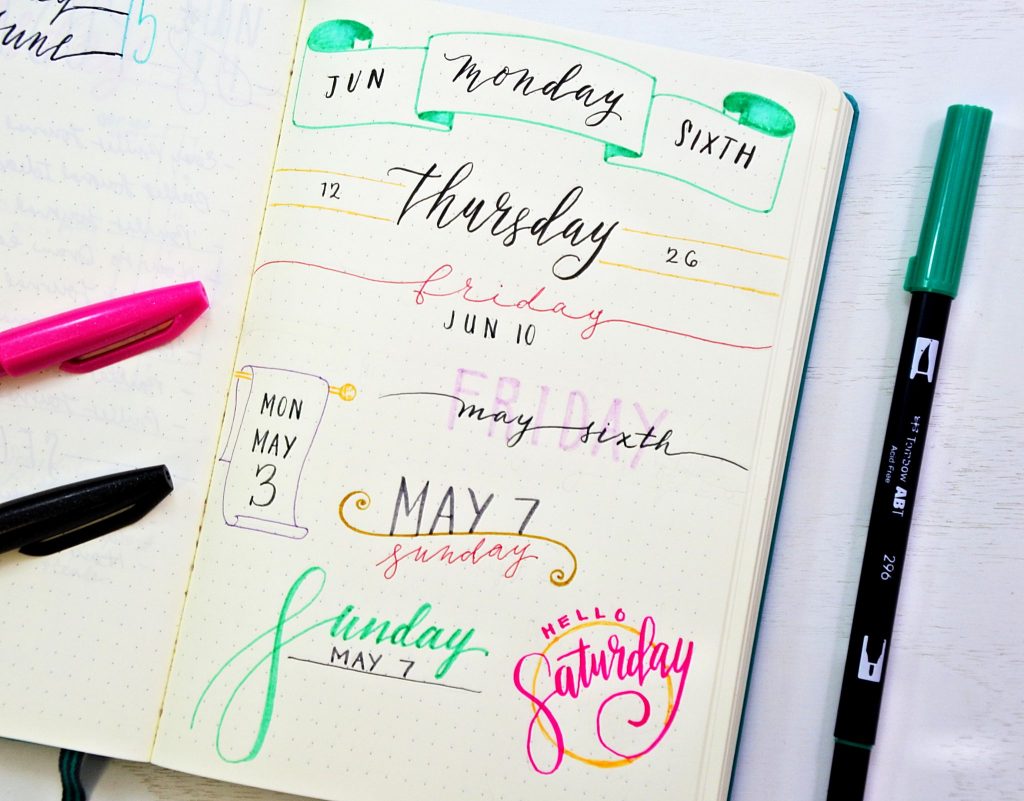 June
15
JUN monday SIXTH
12 Thursday 26
friday
JUN 10
MON
MAY
3
FRIDAY
may sixth
MAY 7
sunday
Sunday
MAY 7
HELLO
Saturday
Tombow ABT 296
Acid Free